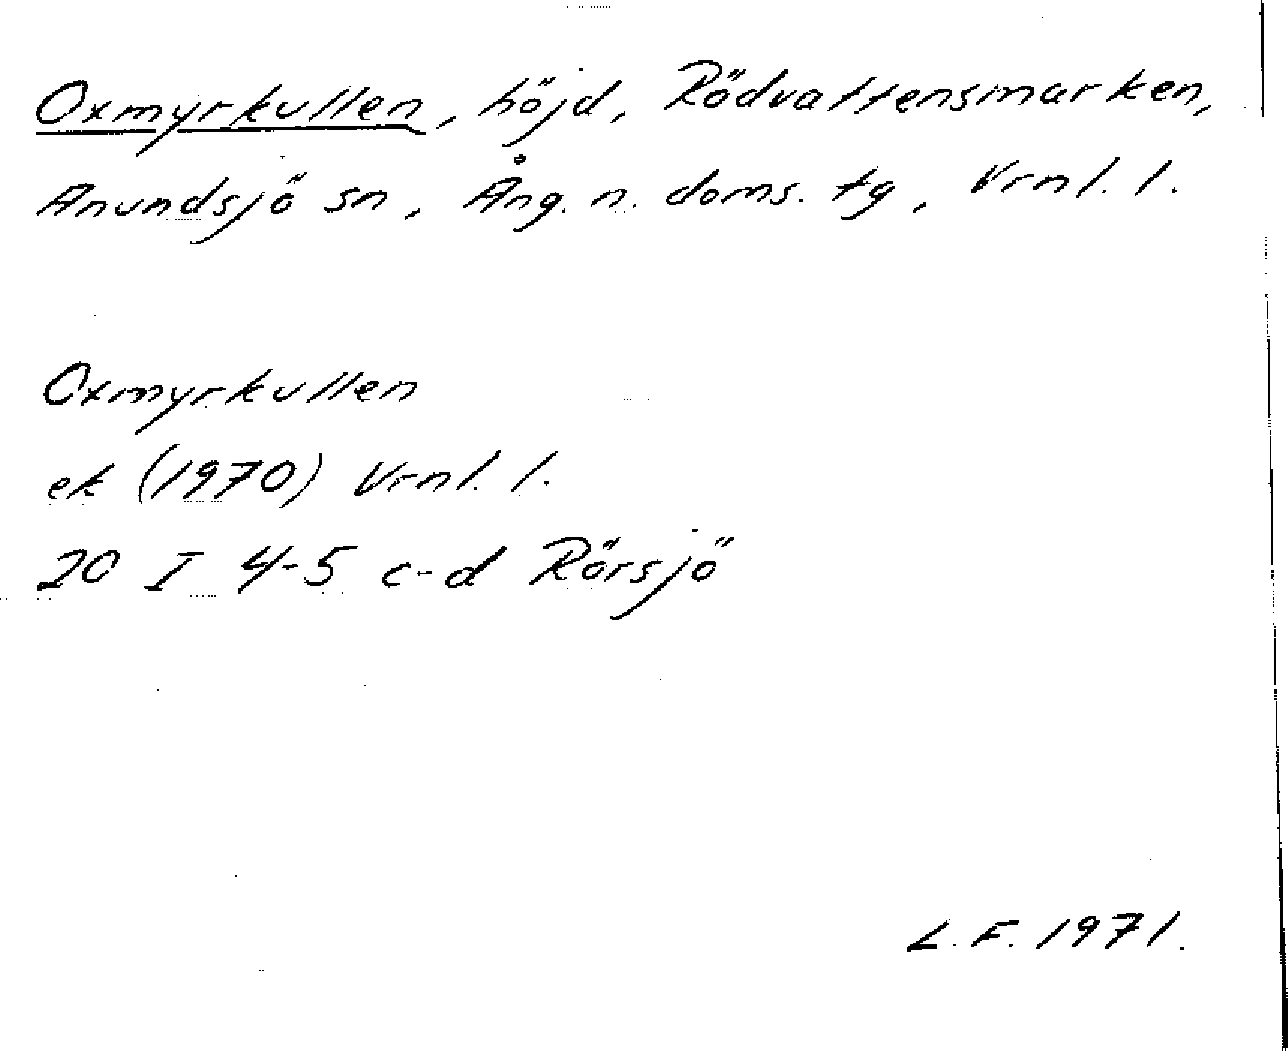 Oxmyrkullen, höjd, Rödvattensmarken,
Anundsjö sn, Ång. n. doms. tg, Vrnl. l.
Oxmyrkullen
ek (1970) Vrnl. l.
20 I 4-5 c-d Rörsjö
L. F. 1971.